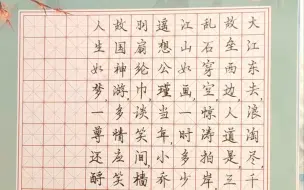 大江东去,浪淘尽千
故垒西边,人道是三
乱石穿空,惊涛拍岸,
江山如画,一时多少
遥想公瑾当年,小乔
羽扇纶巾,谈笑间,樯
故国神游,多情应笑
人生如梦,一尊还酹